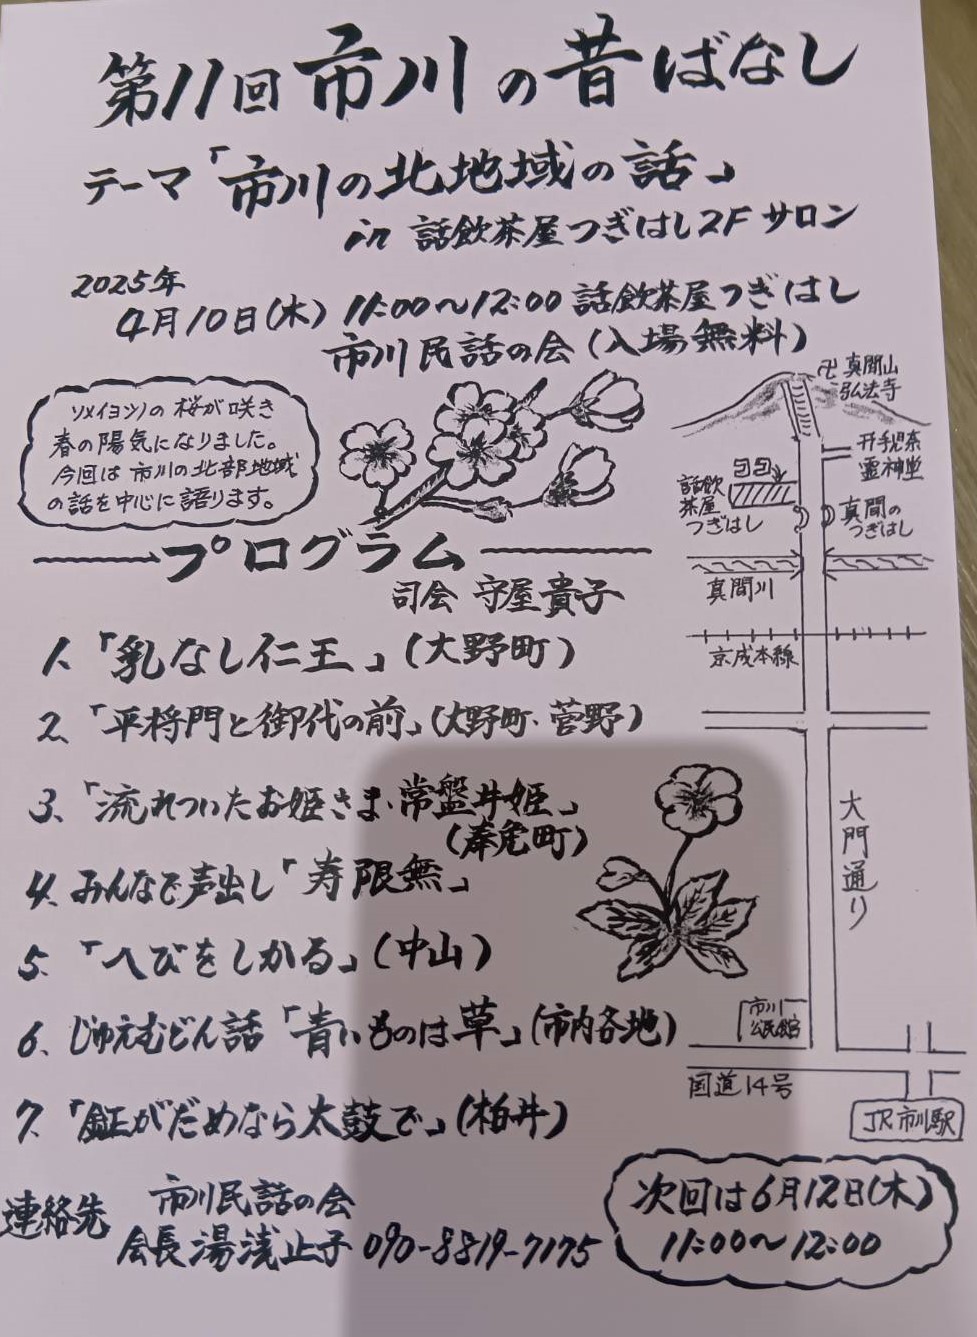 第11回 市川の昔ばなし
テーマ「市川の北地域の話」
in 話飲茶屋つぎはし2Fサロン
2025年
4月10日(木) 11:00〜12:00 話飲茶屋つぎはし
市川民話の会(入場無料)
ソメイヨシノの桜が咲き
春の陽気になりました。
今回は市川の北部地域
の話を中心に語ります。
プログラム
司会 守屋貴子
1.「乳なし仁王」(大野町)
2.「平将門と御代の前」(大野町・菅野)
3.「流れついたお姫さま・常盤井姫」
(奉免町)
4.みんなで声出し「寿限無」
5.「へびをしかる」(中山)
6.じゅえむどん話「青いものは草」(市内各地)
7.「鉦がだめなら太鼓で」(柏井)
連絡先
市川民話の会
会長 湯浅止子 090-8819-7175
次回は6月12日(木)
11:00〜12:00
卍 真間山
弘法寺
手児奈
霊神堂
話飲
茶屋
つぎはし
真間の
つぎはし
真間川
京成本線
大門通り
市川
公民館
国道14号
JR市川駅